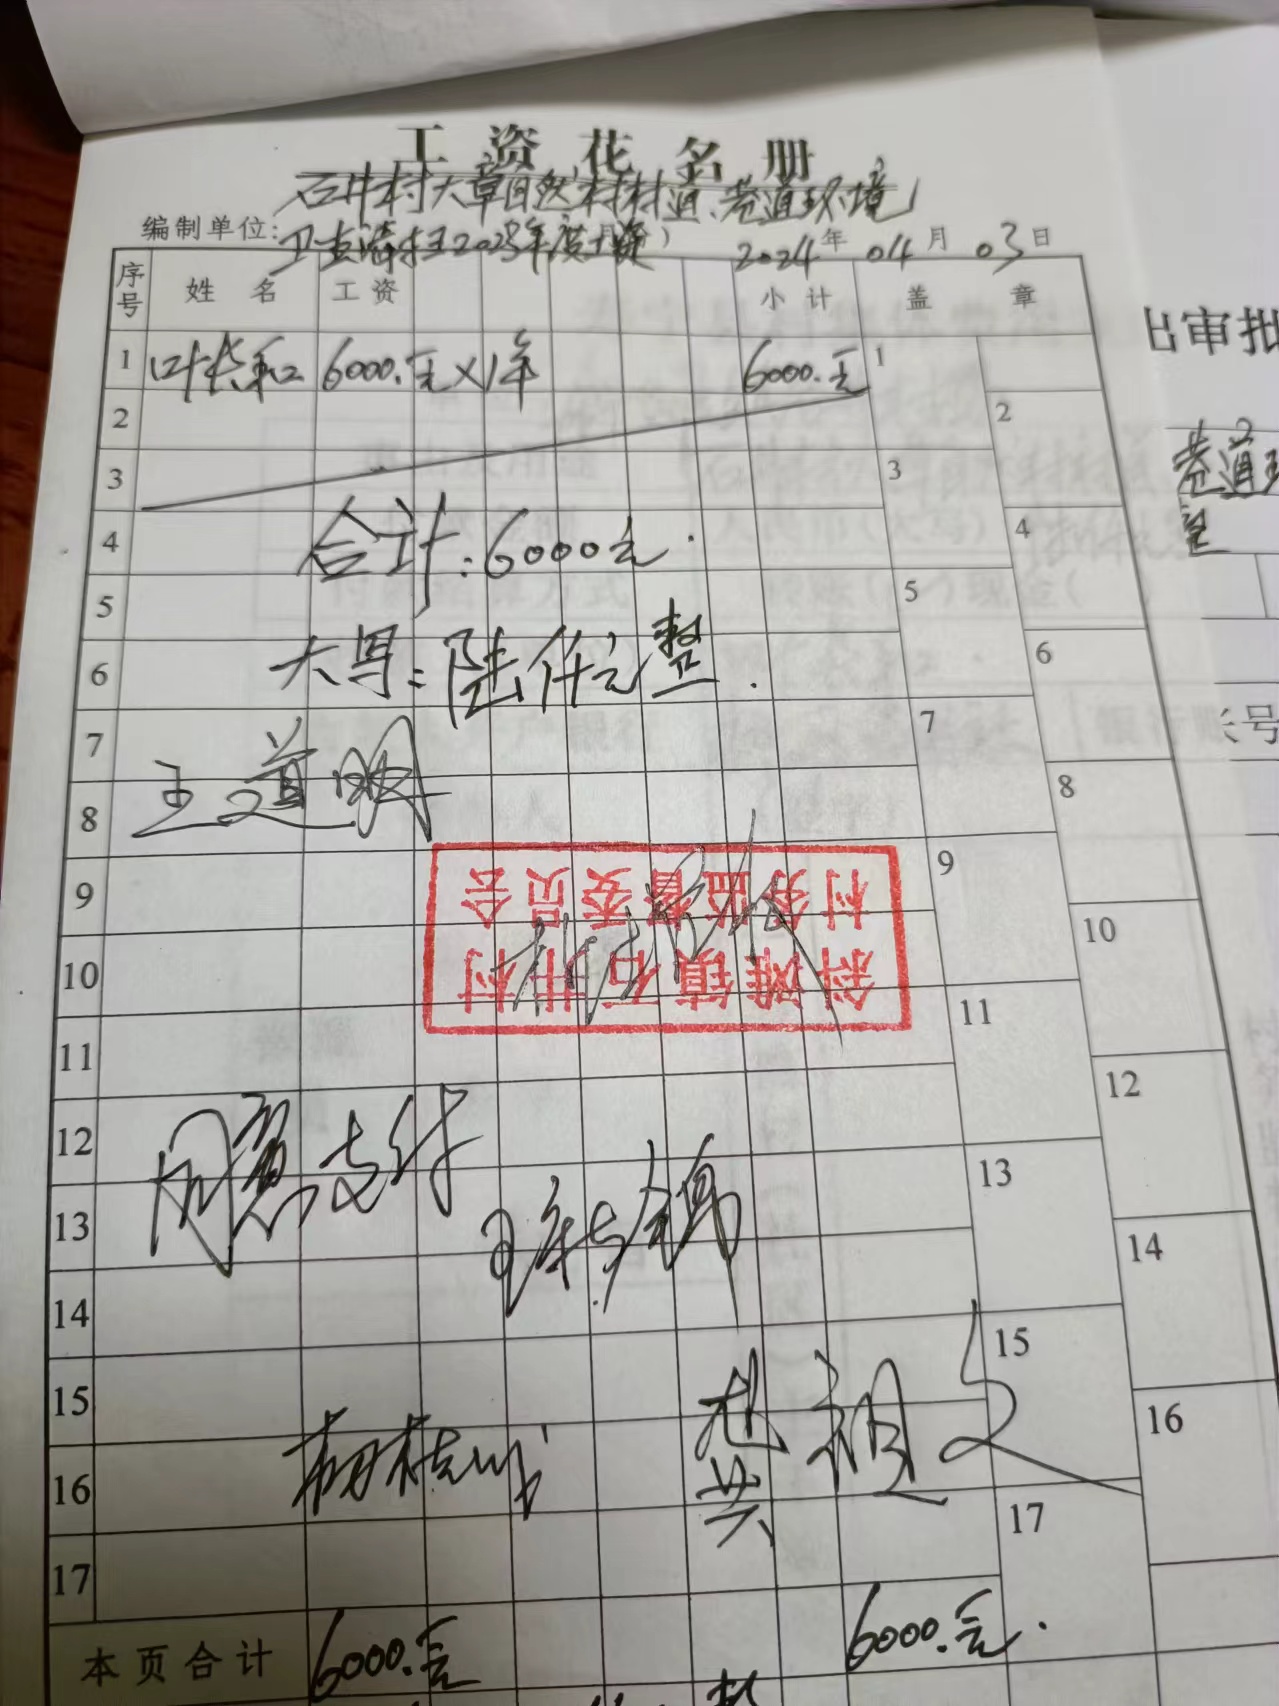 工资花名册
石井村大章自然村村道、巷道环境
编制单位: 卫生清扫2023年度工资 ) 2024年04月03日
序号 姓名 工资 小计 盖章
1 叶长和 6000.元×1年 6000.元 1
2 2
3 3
合计:6000元.
4 4
5 5
大写:陆仟元整.
6 6
7 7
王道明
8 8
9 9
村务监督委员会
斜滩镇石井村
10 10
11 11
12 12
同意支付
13 13
14 14
15 15
16 16
17 17
本页合计 6000.元 6000.元.
出审批
巷道环
号